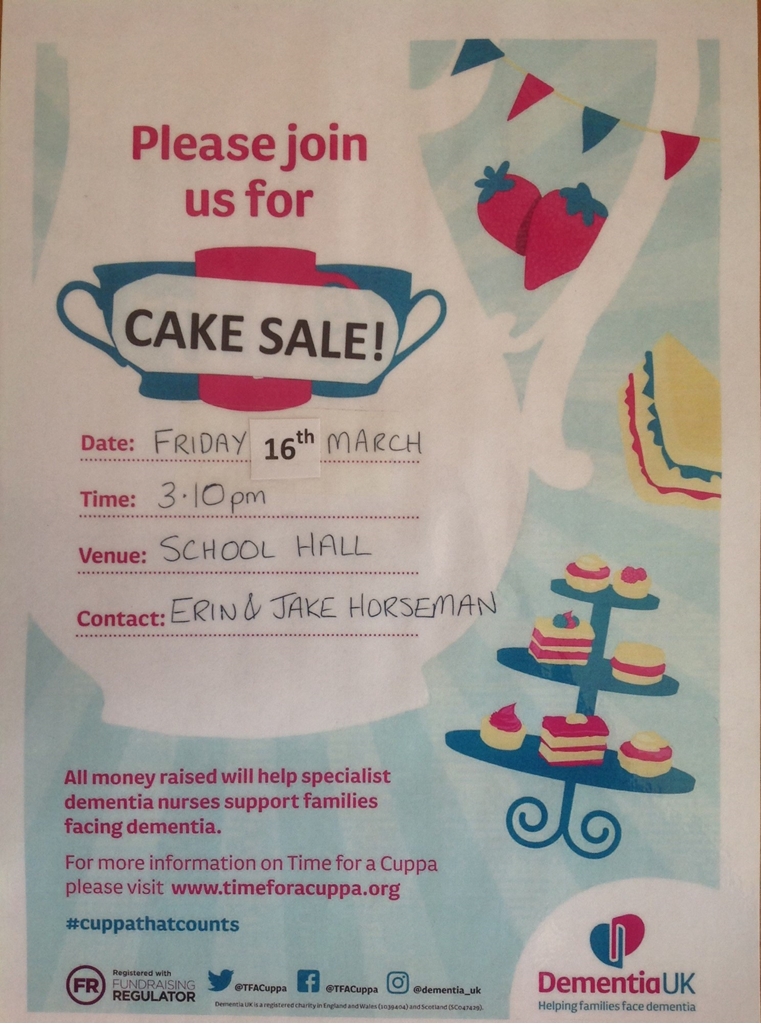 Please join
us for
CAKE SALE!
Date: FRIDAY 16th MARCH
Time: 3.10pm
Venue: SCHOOL HALL
Contact: ERIN & JAKE HORSEMAN
All money raised will help specialist
dementia nurses support families
facing dementia.
For more information on Time for a Cuppa
please visit www.timeforacuppa.org
#cuppathatcounts
FR Registered with
FUNDRAISING
REGULATOR
@TFACuppa @TFACuppa @dementia_uk
Dementia UK is a registered charity in England and Wales (1039404) and Scotland (SC047429).
DementiaUK
Helping families face dementia